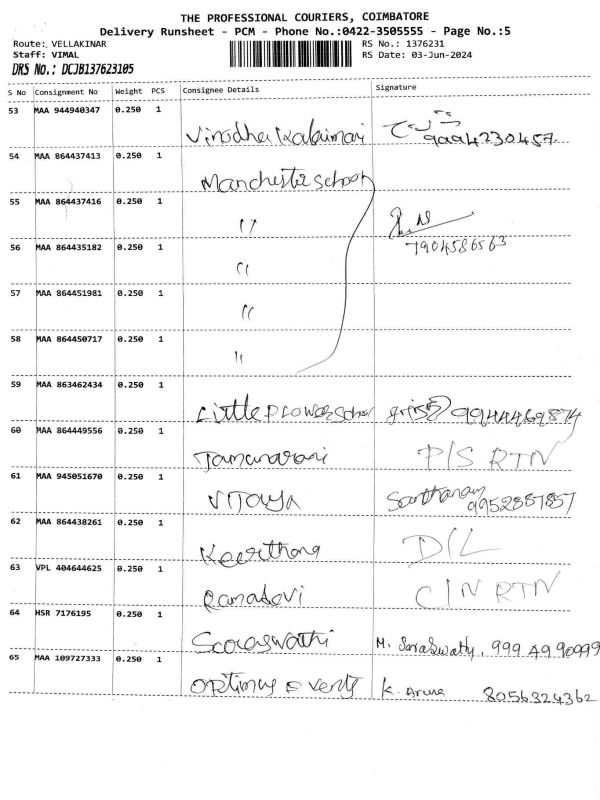 THE PROFESSIONAL COURIERS, COIMBATORE
Delivery Runsheet - PCM - Phone No.:0422-3505555 - Page No.:5
Route: VELLAKINAR RS No.: 1376231
Staff: VIMAL RS Date: 03-Jun-2024
DRS No.: DCJB137623105
S No Consignment No Weight PCS Consignee Details Signature
53 MAA 944940347 0.250 1
9994230457.
54 MAA 864437413 0.250 1
Manchester school
55 MAA 864437416 0.250 1
"
7904586563
56 MAA 864435182 0.250 1
"
57 MAA 864451981 0.250 1
"
58 MAA 864450717 0.250 1
"
59 MAA 863462434 0.250 1
Little Flower School 9944469874
60 MAA 864449556 0.250 1
P/S RTN
61 MAA 945051670 0.250 1
Vijaya Santhanam
9952887857
62 MAA 864438261 0.250 1
Keerthana D/L
63 VPL 404644625 0.250 1
Ramadevi C/N RTN
64 HSR 7176195 0.250 1
Saraswathi M. Saraswathy, 999 49 90999
65 MAA 109727333 0.250 1
Optimus Events K. Aruna 8056324362